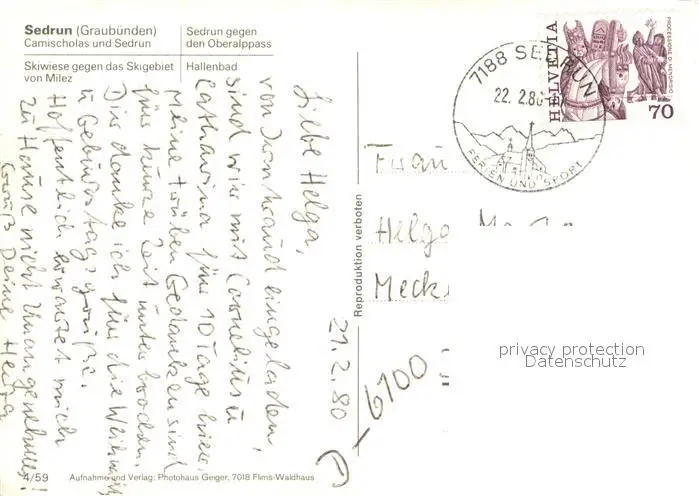 Sedrun (Graubünden)
Camischolas und Sedrun
Sedrun gegen
den Oberalppass
Skiwiese gegen das Skigebiet
von Milez
Hallenbad
21.2.80
Liebe Helga,
von Irmtraud eingeladen,
sind wir mit Cornelius u
Catharina für 10 Tage hier.
Meine trüben Gedanken sind
für kurze Zeit unterbrochen.
Dir danke ich für die Weihnachts
u Geburtstagsgrüße.
Hoffentlich erwartet mich
zu Hause nicht Unangenehmes!
Gruß Deine Herta
4/59 Aufnahme und Verlag: Photohaus Geiger, 7018 Flims-Waldhaus
Reproduktion verboten
7188 SEDRUN
22.2.80
FERIEN UND SPORT
HELVETIA
PROCESSIONE DI MENDRISIO
70
Frau
Helga
6100
privacy protection
Datenschutz